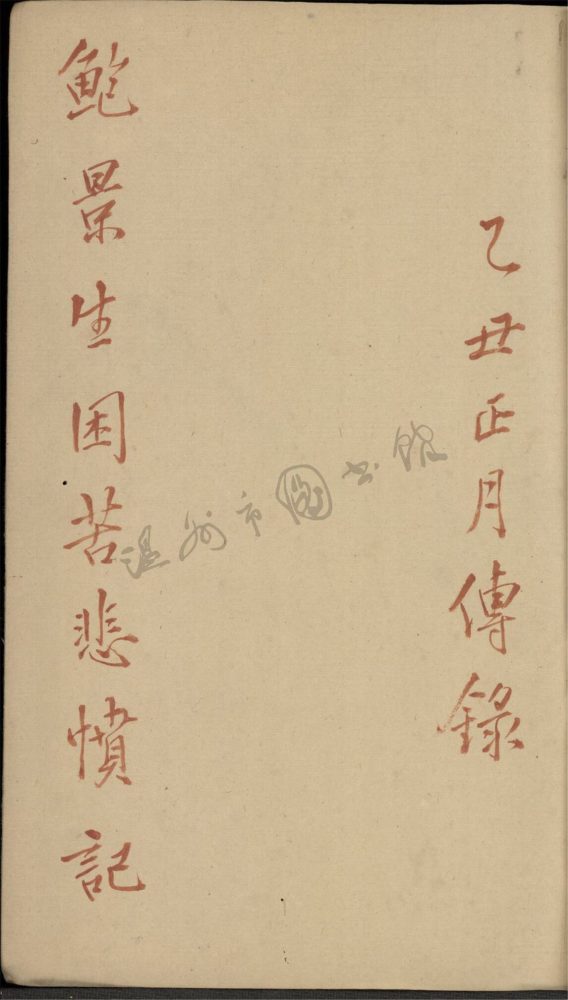 乙丑正月傳錄
鮑景生困苦悲憤記
温州市圖书馆